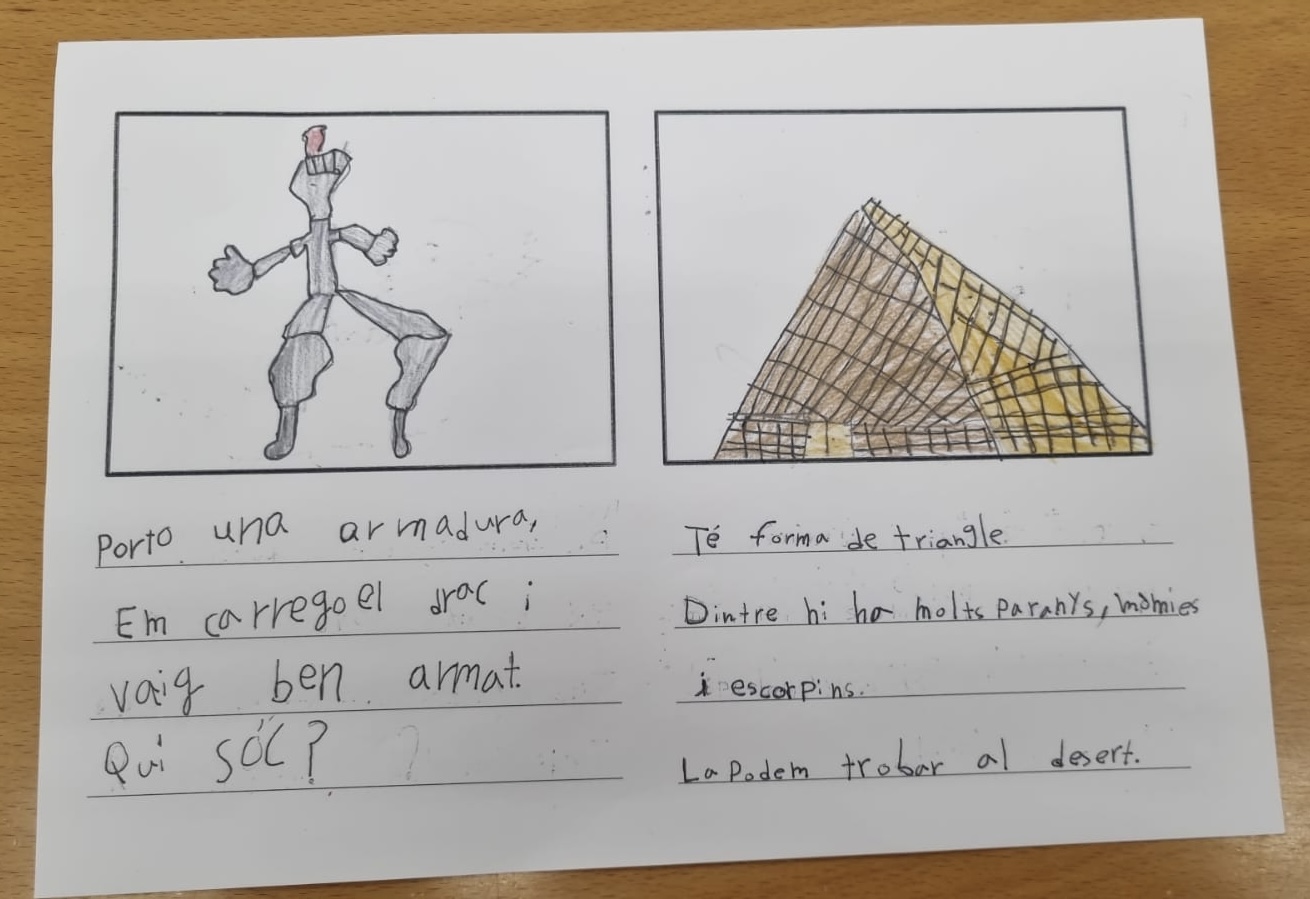 Porto una armadura,
Em carrego el drac i
vaig ben armat.
Qui sóc?
Té forma de triangle.
Dintre hi ha molts paranys, mòmies
i escorpins.
La podem trobar al desert.